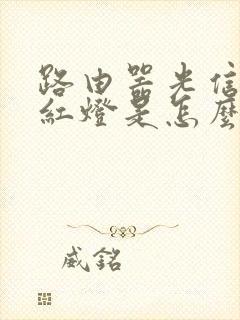 路由器光信
紅燈是怎麼
威銘